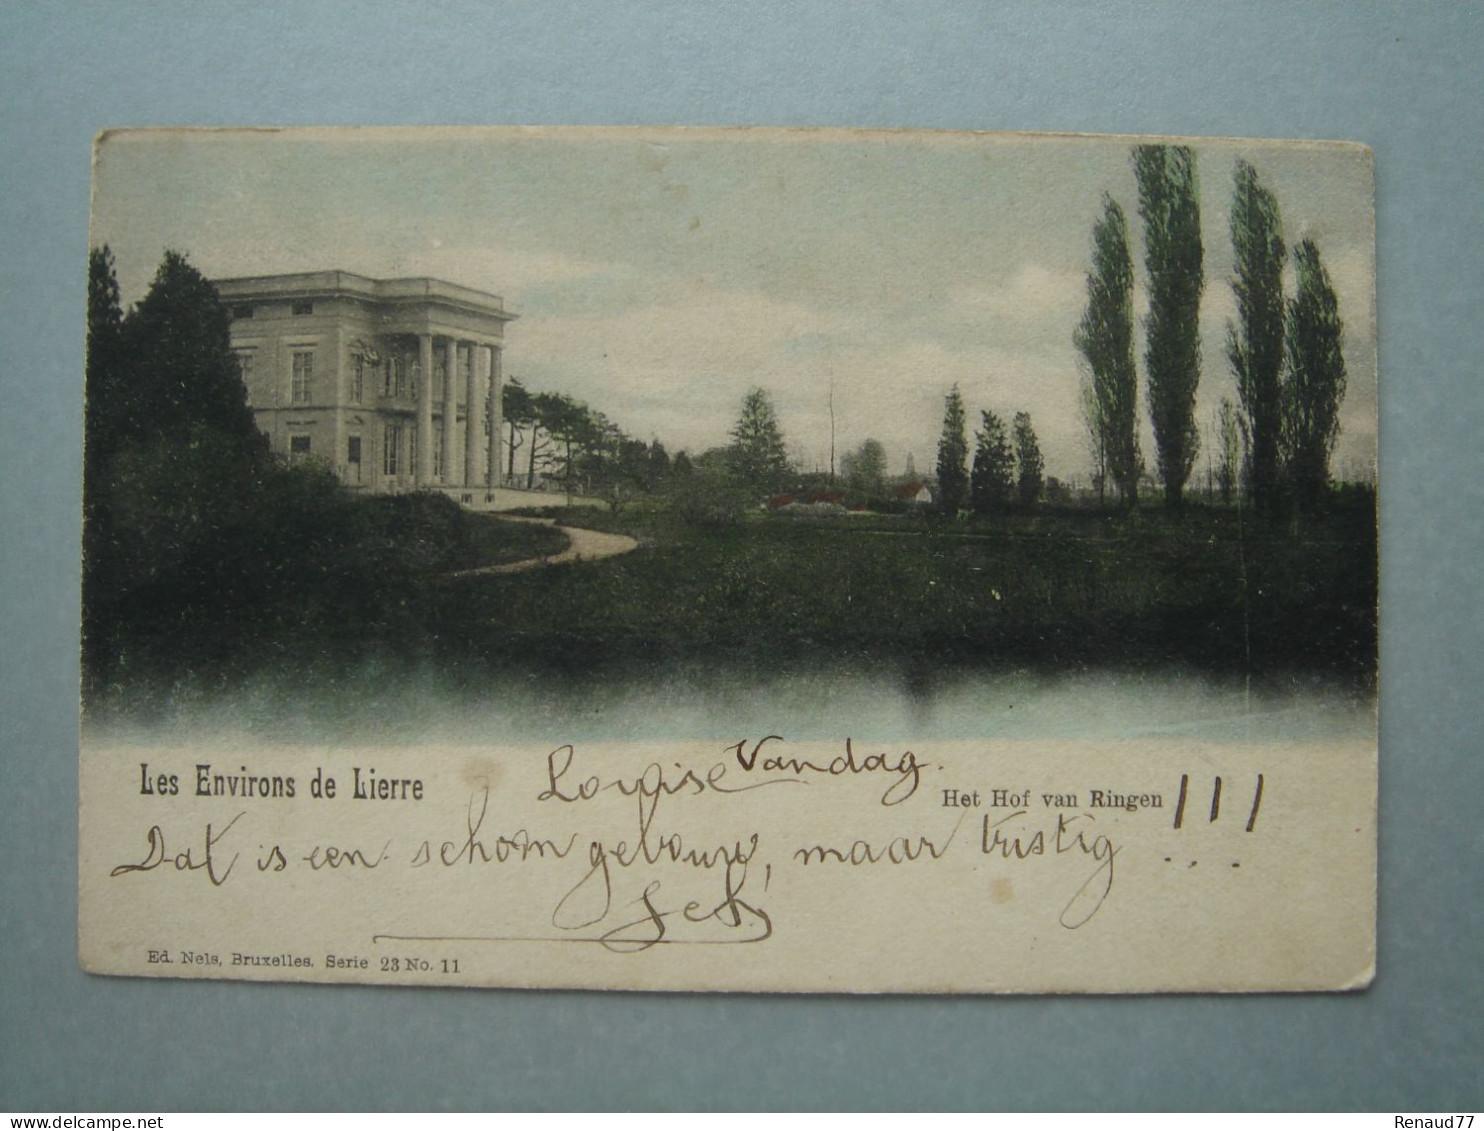 Les Environs de Lierre
Louise Vandag.
Het Hof van Ringen !!!
Dat is een schom gebouw, maar tristig ...
Ed. Nels, Bruxelles. Serie 23 No. 11
Renaud77